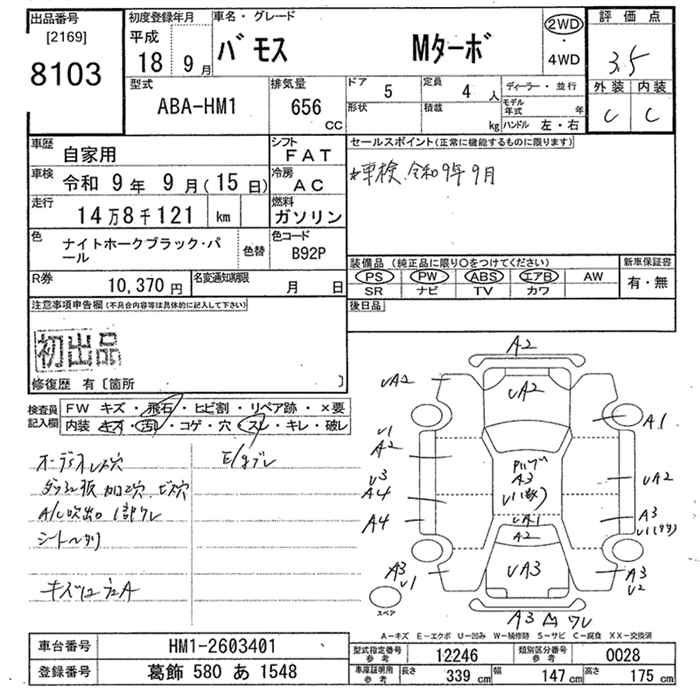 出品番号
[2169]
8103
初度登録年月
平成
18 9月
車名・グレード
バモス Mターボ
2WD
・
4WD
評価点
3.5
外装 内装
C C
型式
ABA-HM1
排気量
656
CC
ドア 5
定員 4 人
形状
積載 kg
ディーラー・並行
モデル年式 年
ハンドル 左・右
車歴
自家用
シフト
FAT
車検
令和 9年 9月(15日)
冷房
AC
走行
14万8千121 km
燃料
ガソリン
色
ナイトホークブラック・パ
ール
色替
色コード
B92P
R券
10,370円
名変通知期限
月 日
セールスポイント(正常に機能するものに限ります)
*車検、令和9年9月
装備品 (純正品に限り○をつけてください)
PS PW ABS エアB AW
SR ナビ TV カワ
新車保証書
有・無
後日品
注意事項申告欄(不具合内容等は具体的に記入して下さい)
初出品
修復歴 有〔箇所 〕
検査員
記入欄
FW キズ・飛石・ヒビ割・リペア跡・×要
内装 キズ・汚れ・コゲ・穴・スレ・キレ・破レ
オーディオレス穴
ダッシュ板 加工穴 ビス穴
A/C吹出口 1部ワレ
シートヘタリ
E/gブレ
A2
UA2
UA2
A1
U1
A2
U3
A4
A4
A3
U1
A3
UA2
A3
UA1
A2
UA3
A3
U2
A3 ワレ
スペア
A-キズ E-エクボ U-凹み W-補修跡 S-サビ C-腐食 XX-交換済
車台番号
HM1-2603401
登録番号
葛飾 580 あ 1548
型式指定番号
参考
12246
類別区分番号
参考
0028
車庫証明用
参考
長さ 339 cm
幅 147 cm
高さ 175 cm